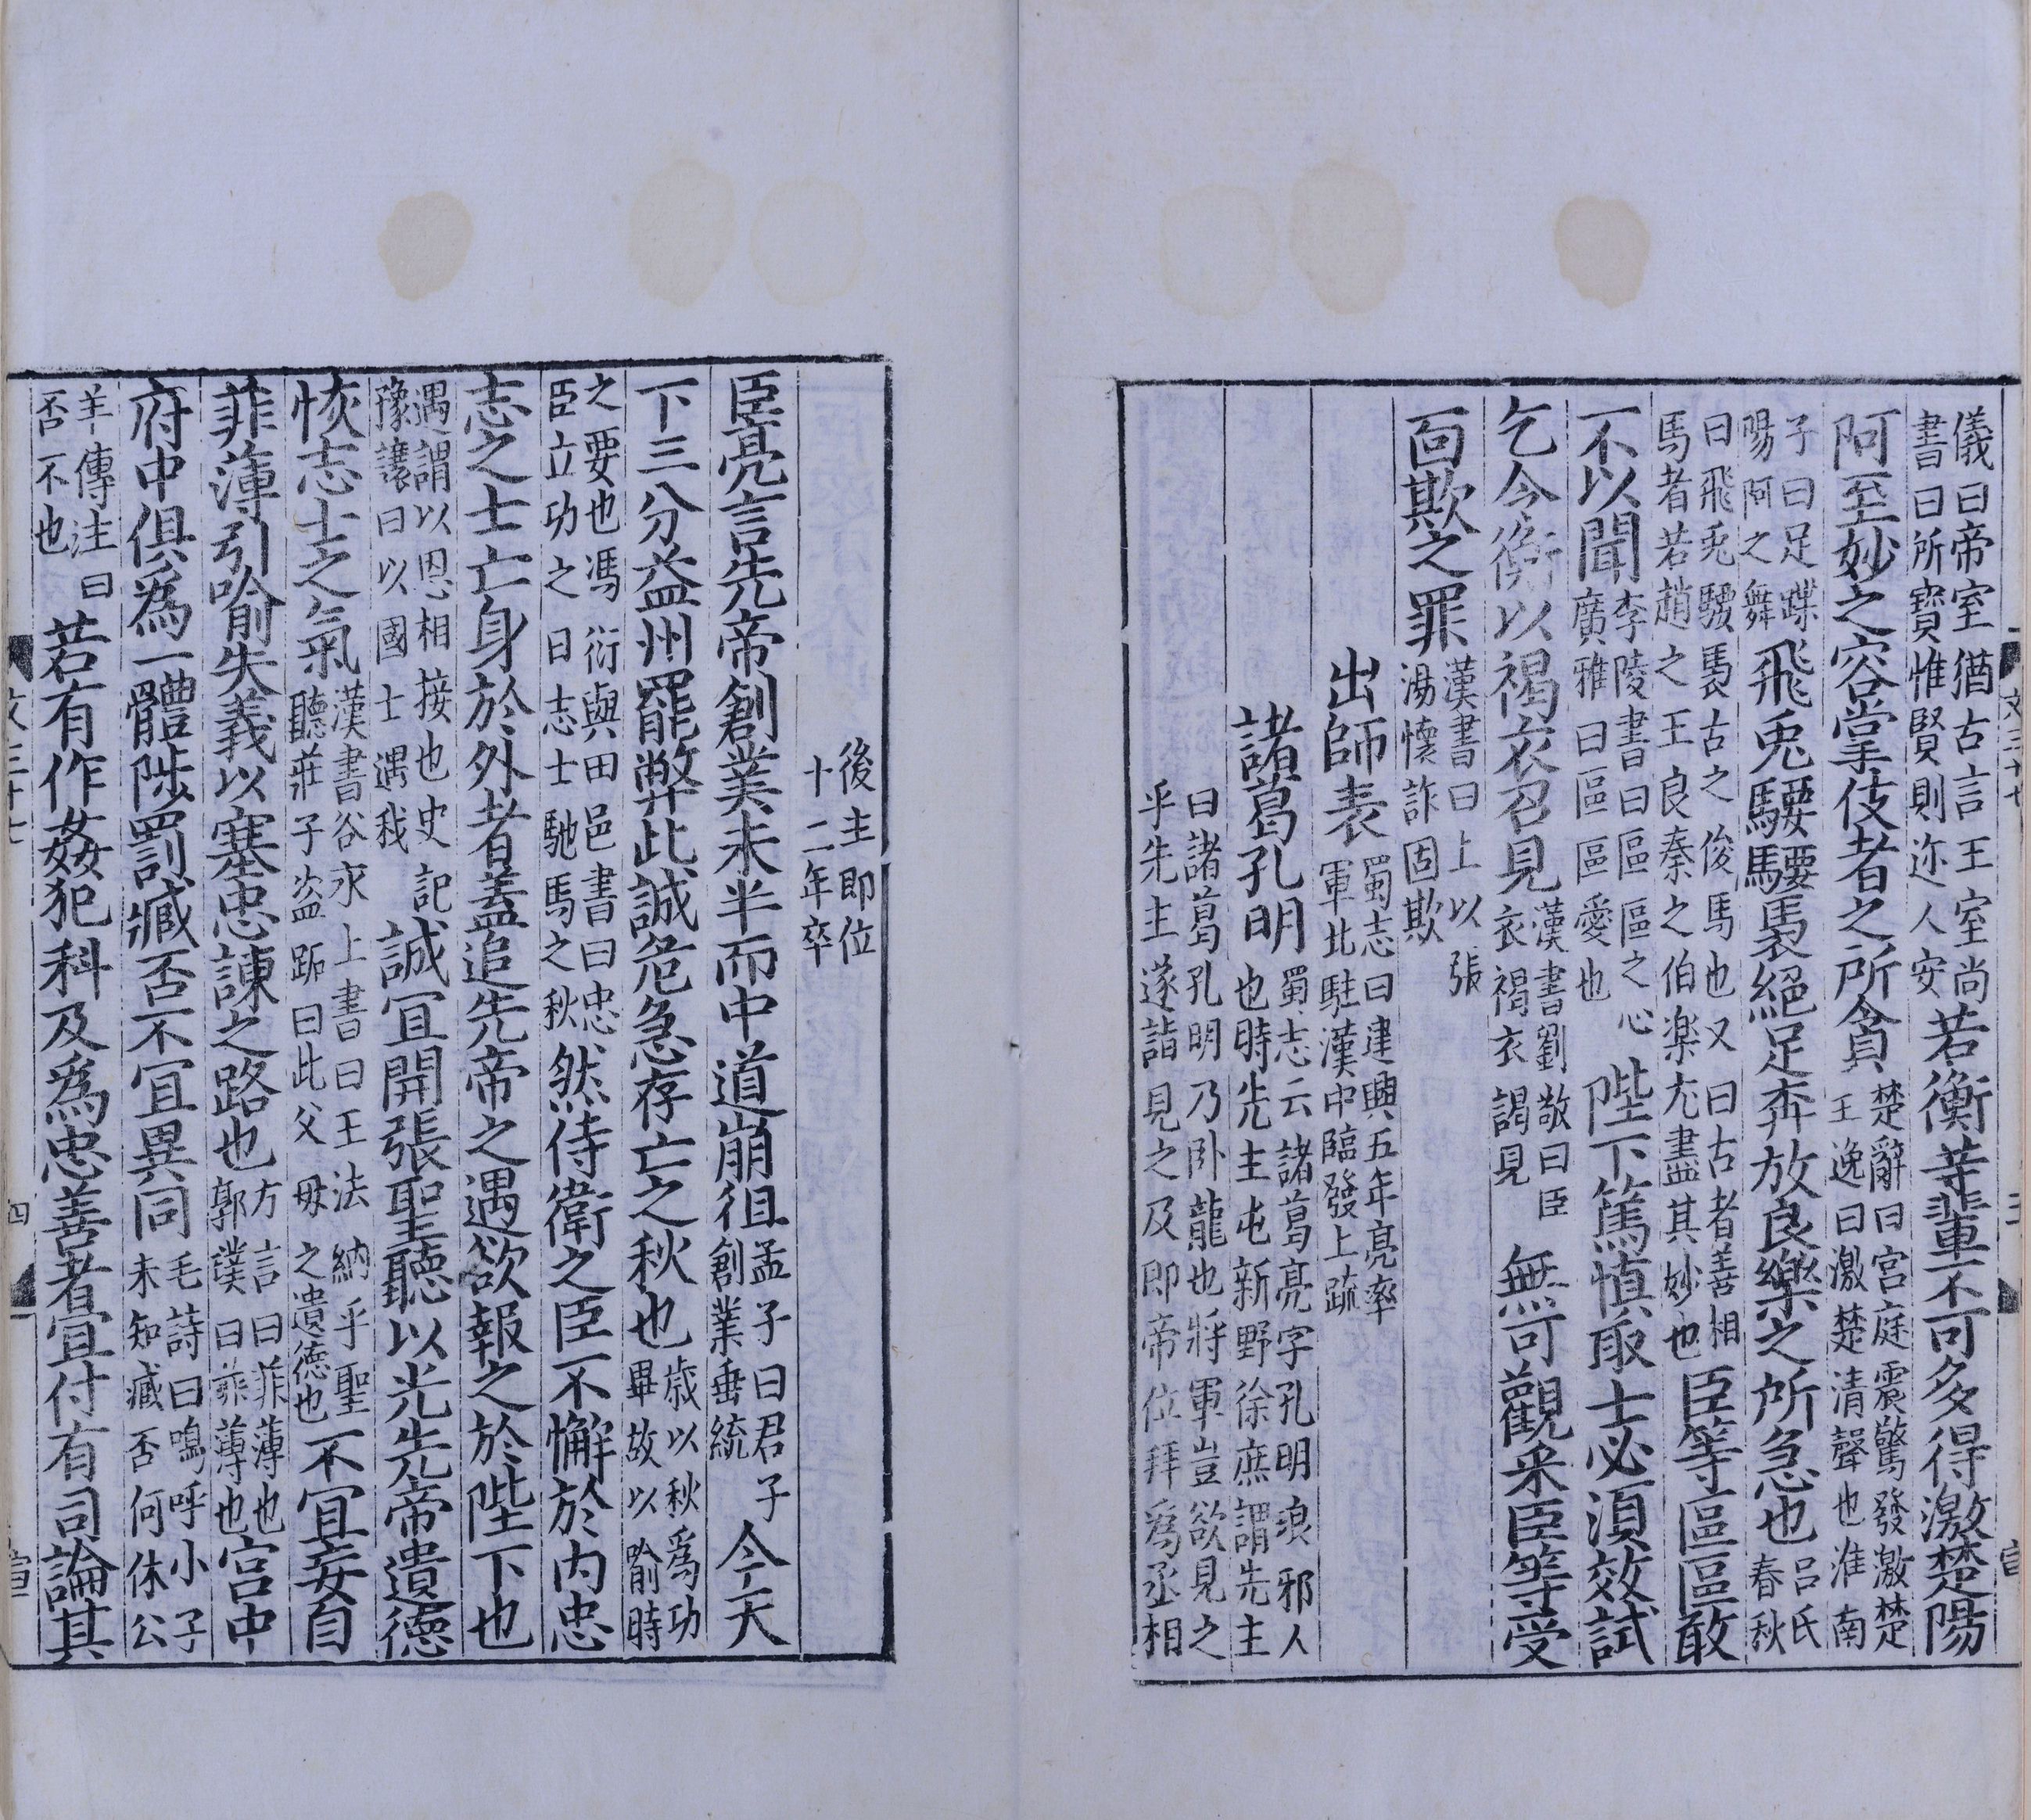 儀曰帝室猶古言王室尚
書曰所寳惟賢則迩人安
若衡等輩不可多得激楚陽
阿至妙之容掌伎者之所貪
楚辭曰宫庭震驚發激楚
王逸曰激楚清聲也淮南
子曰足蹀
陽阿之舞
飛兎騕褭絕足奔放良樂之所急也
吕氏
春秋
曰飛兎騕褭古之俊馬也又曰古者善相
馬者若趙之王良秦之伯樂尤盡其妙也
臣等區區敢
不以聞
李陵書曰區區之心
廣雅曰區區愛也
陛下篤慎取士必湏效試
乞令衡以褐衣召見
漢書劉敬曰臣
衣褐衣謁見
無可觀采臣等受
面欺之罪
漢書曰上以張
湯懷詐固欺
出師表
蜀志曰建興五年亮率
軍北駐漢中臨發上疏
諸葛孔明
蜀志云諸葛亮字孔明琅邪人
也時先主屯新野徐庶謂先主
曰諸葛孔明乃卧龍也將軍豈欲見之
乎先主遂詣見之及即帝位拜爲丞相
後主即位
十二年卒
臣亮言先帝創業未半而中道崩徂
孟子曰君子
創業垂統
今天
下三分益州罷弊此誠危急存亡之秋也
歳以秋爲功
畢故以喻時
之要也馮衍與田邑書曰忠
臣立功之日志士馳馬之秋
然侍衛之臣不懈於内忠
志之士亡身於外者蓋追先帝之遇欲報之於陛下也
遇謂以恩相接也史記
豫讓曰以國士遇我
誠宜開張聖聽以光先帝遺德
恢志士之氣
漢書谷永上書曰王法納乎聖
聽莊子盗跖曰此父母之遺德也
不宜妄自
菲薄引喻失義以塞忠諫之路也
方言曰菲薄也
郭璞曰菲薄也
宫中
府中俱爲一體陟罰臧否不宜異同
毛詩曰嗚呼小子
未知臧否何休公
羊傳注曰
否不也
若有作姦犯科及爲忠善者宜付有司論其
文三十七
三
文三十七
四